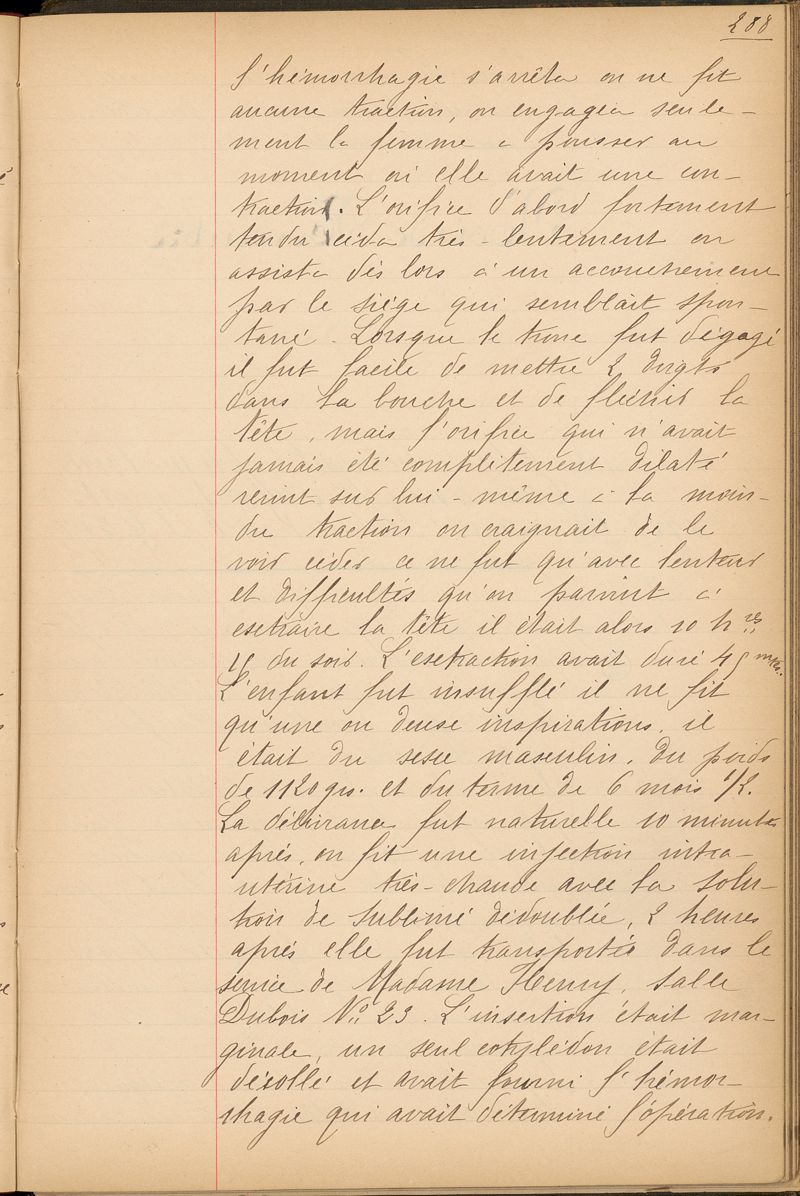 288
l'hémorrhagie s'arrêta on ne fit
aucune traction, on engagea seule-
ment la femme à pousser au
moment où elle avait une con-
traction. L'orifice d'abord fortement
tendu céda très-lentement on
assista dès lors à un accouchement
par le siège qui semblait spon-
tané. Lorsque le tronc fut dégagé
il fut facile de mettre 2 doigts
dans la bouche et de fléchir la
tête, mais l'orifice qui n'avait
jamais été complètement dilaté
revint sur lui-même à la moin-
dre traction on craignait de le
voir céder ce ne fut qu'avec lenteur
et difficultés qu'on parvint à
extraire la tête il était alors 10 hres
15 du soir. L'extraction avait duré 45 mtes.
L'enfant fut insufflé il ne fit
qu'une ou deux inspirations. il
était du sexe masculin, du poids
de 1120 grs. et du terme de 6 mois 1/2.
La délivrance fut naturelle 10 minutes
après, on fit une injection intra-
utérine très-chaude avec la solu-
tion de sublimé dédoublée, 2 heures
après elle fut transportée dans le
service de Madame Henry, salle
Dubois No 23. L'insertion était mar-
ginale, un seul cotylédon était
décollé et avait fourni l'hémor-
rhagie qui avait déterminé l'opération.